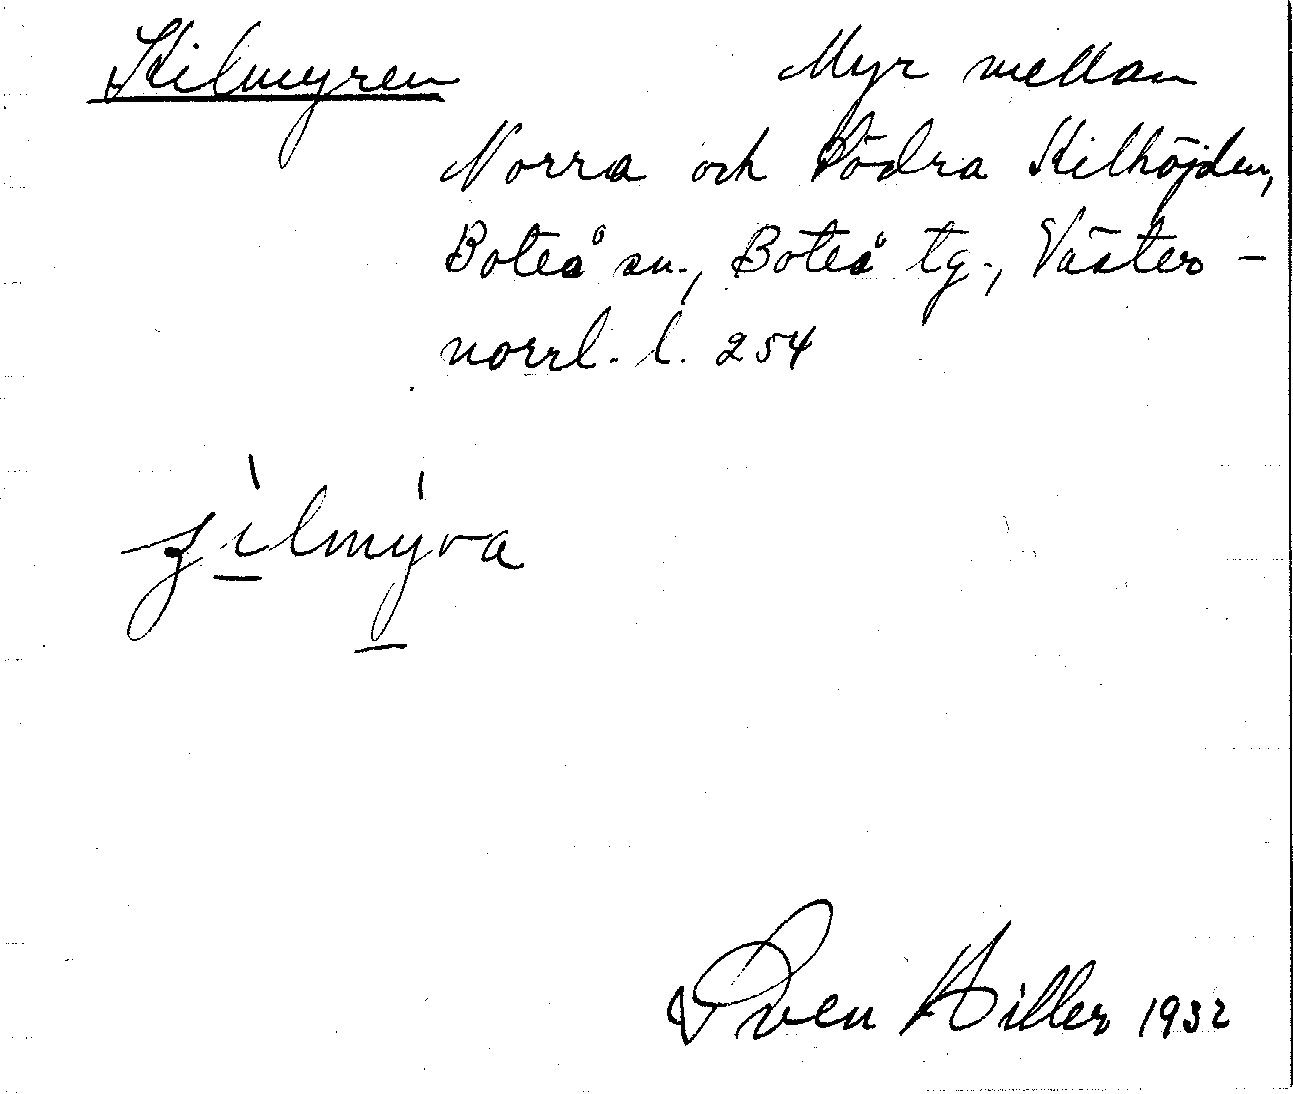 Kilmyren
Myr mellan
Norra och Södra Kilhöjden,
Boteå sn., Boteå tg., Väster-
norrl. l. 254
Sven Hiller 1932